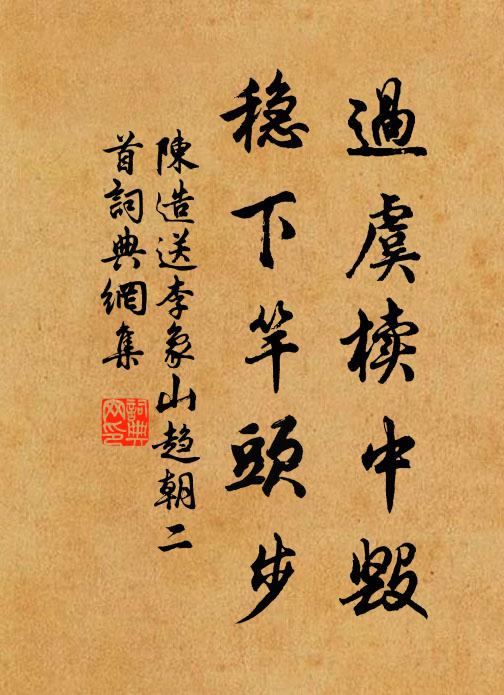 過虞櫝中毀
穩下竿頭步
陳造送李象山趨朝二
首詞典網集
詞典
网印